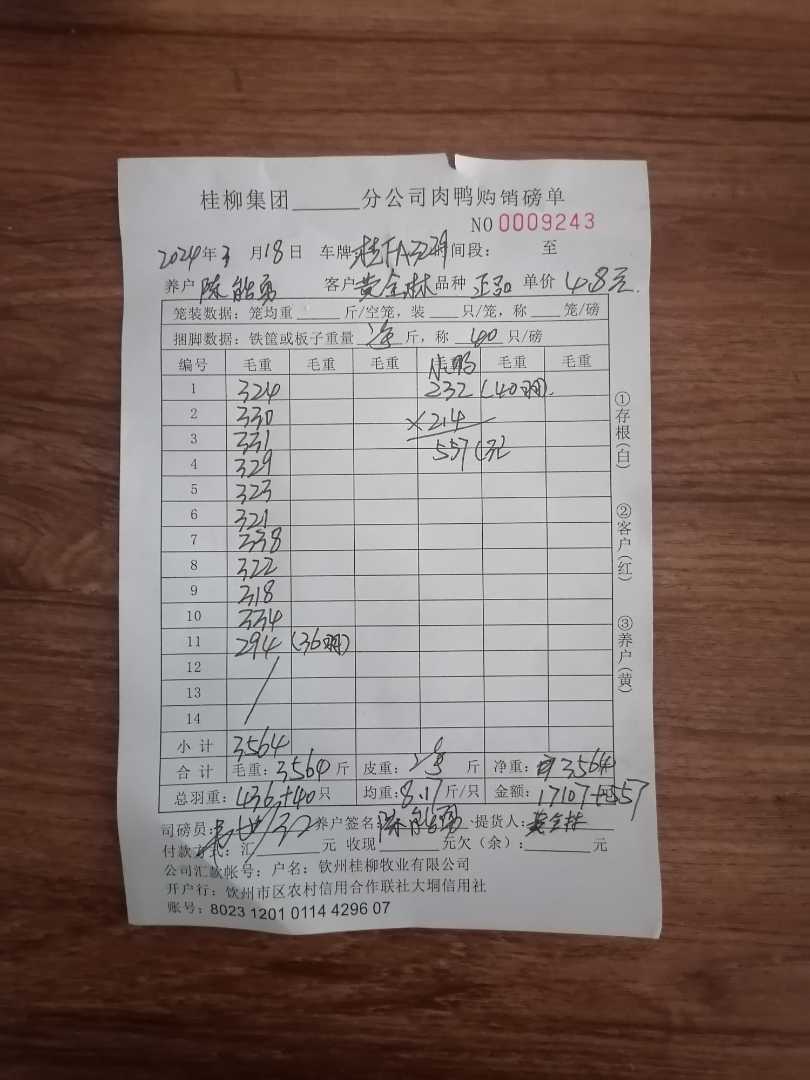 桂柳集团______分公司肉鸭购销磅单
NO 0009243
2024年3月18日 车牌 桂FA 时间段: 至
养户 陈能勇 客户 黄全林 品种 正品 单价 4.8元
笼装数据:笼均重____斤/空笼,装___只/笼,称___笼/磅
捆脚数据:铁筐或板子重量 斤,称 40 只/磅
编号 毛重 毛重 毛重 毛重 毛重 毛重
小鸭
1 324 232 (40羽).
2 330 ×2.4
3 331 557元
4 329
5 323
6 321
7 338
8 322
9 318
10 334
11 294 (36羽)
12
13
14
小计 3564
合计 毛重:3564斤 皮重: 斤 净重:3564
总羽重:436+40只 均重:8.17斤/只 金额:17107+557
司磅员: 养户签名:陈能勇、提货人:黄全林
付款方式:汇______元 收现______元欠(余):______元
公司汇款帐号:户名:钦州桂柳牧业有限公司
开户行:钦州市区农村信用合作联社大垌信用社
账号:8023 1201 0114 4296 07
①存根(白)
②客户(红)
③养户(黄)